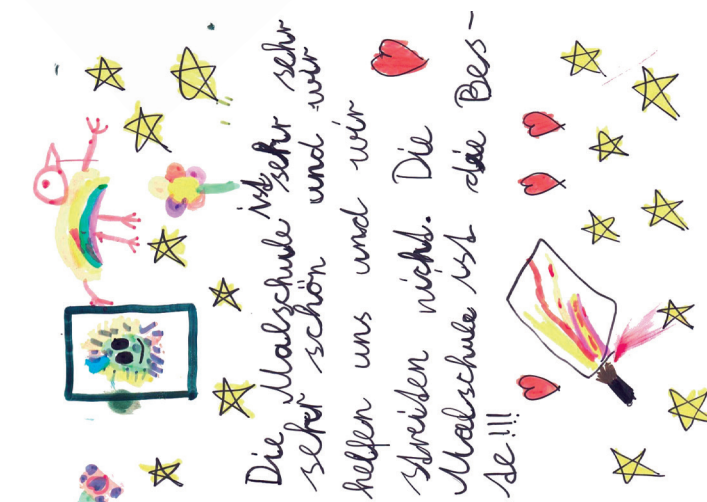 Die Malschule ist sehr sehr
sehr schön und wir
helfen uns und wir
streiten nicht. Die
Malschule ist die Bes-
te!!!